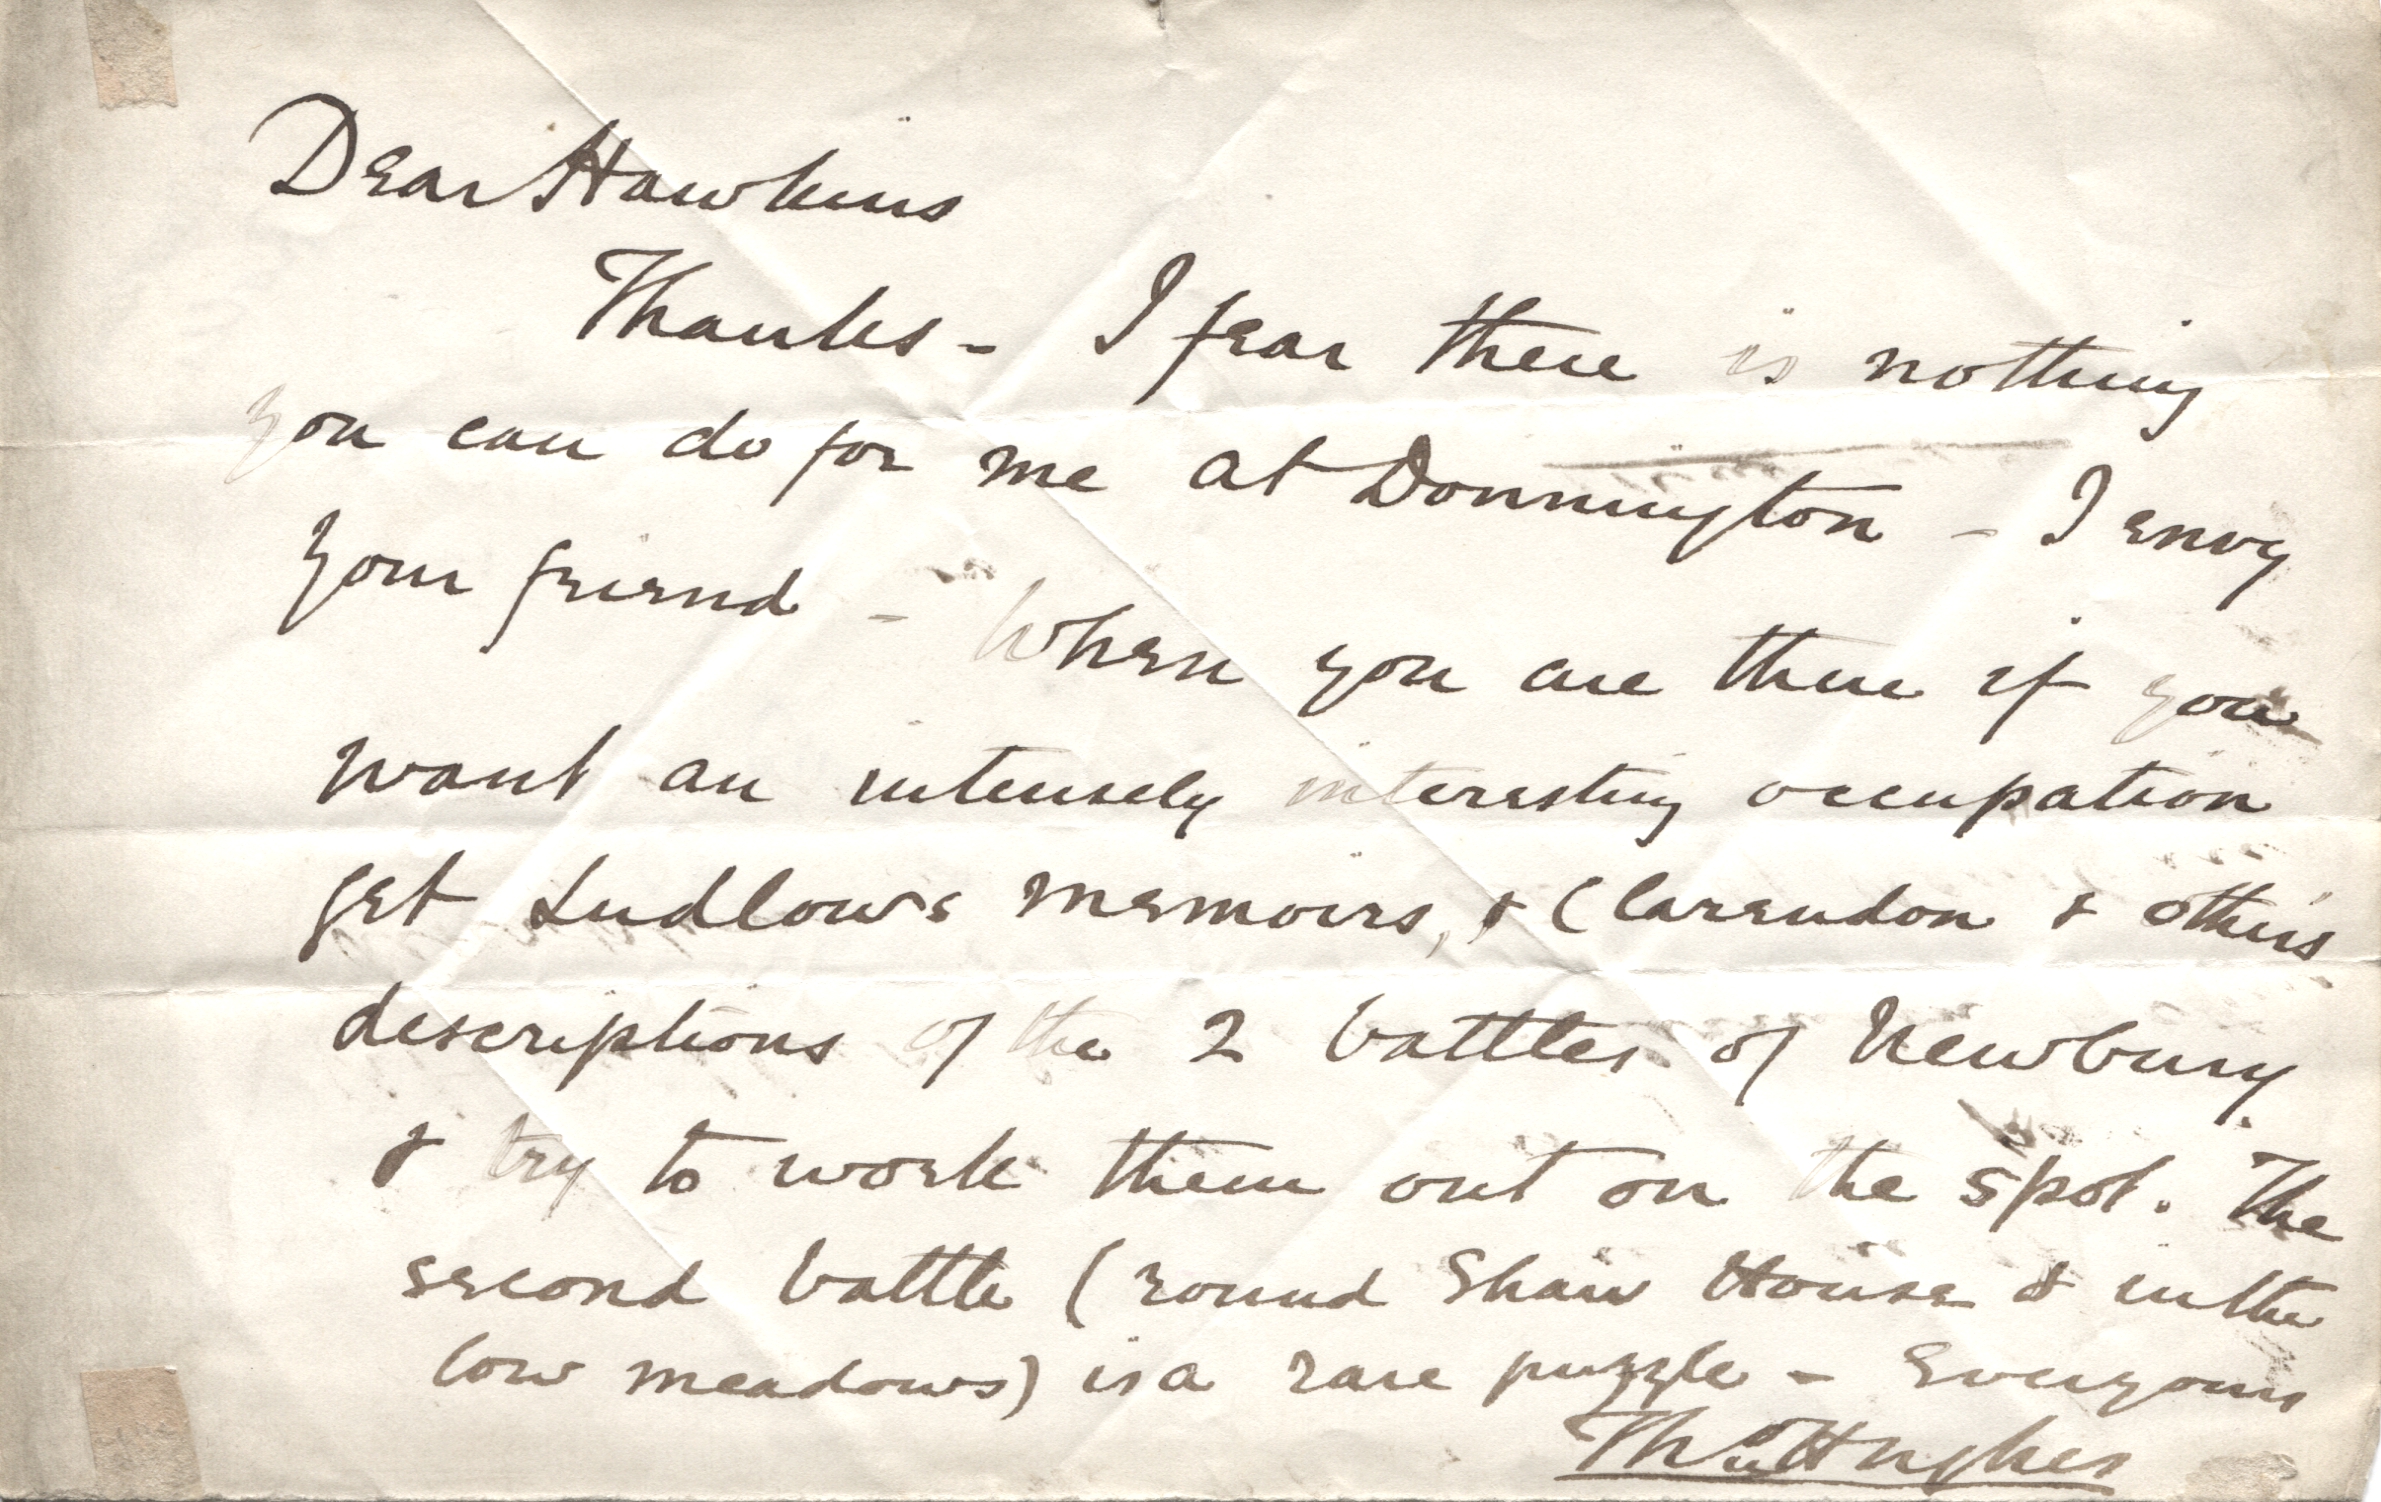 Dear Hawkins
Thanks - I fear there is nothing
you can do for me at Donnington - I envy
your friend - When you are there if you
want an intensely interesting occupation
get Ludlow's memoirs, & Clarendon & others
descriptions of the 2 battles of Newbury.
& try to work them out on the spot. The
second battle (round Shaw House & in the
low meadows) is a rare puzzle - Ever yours
Thos Hughes